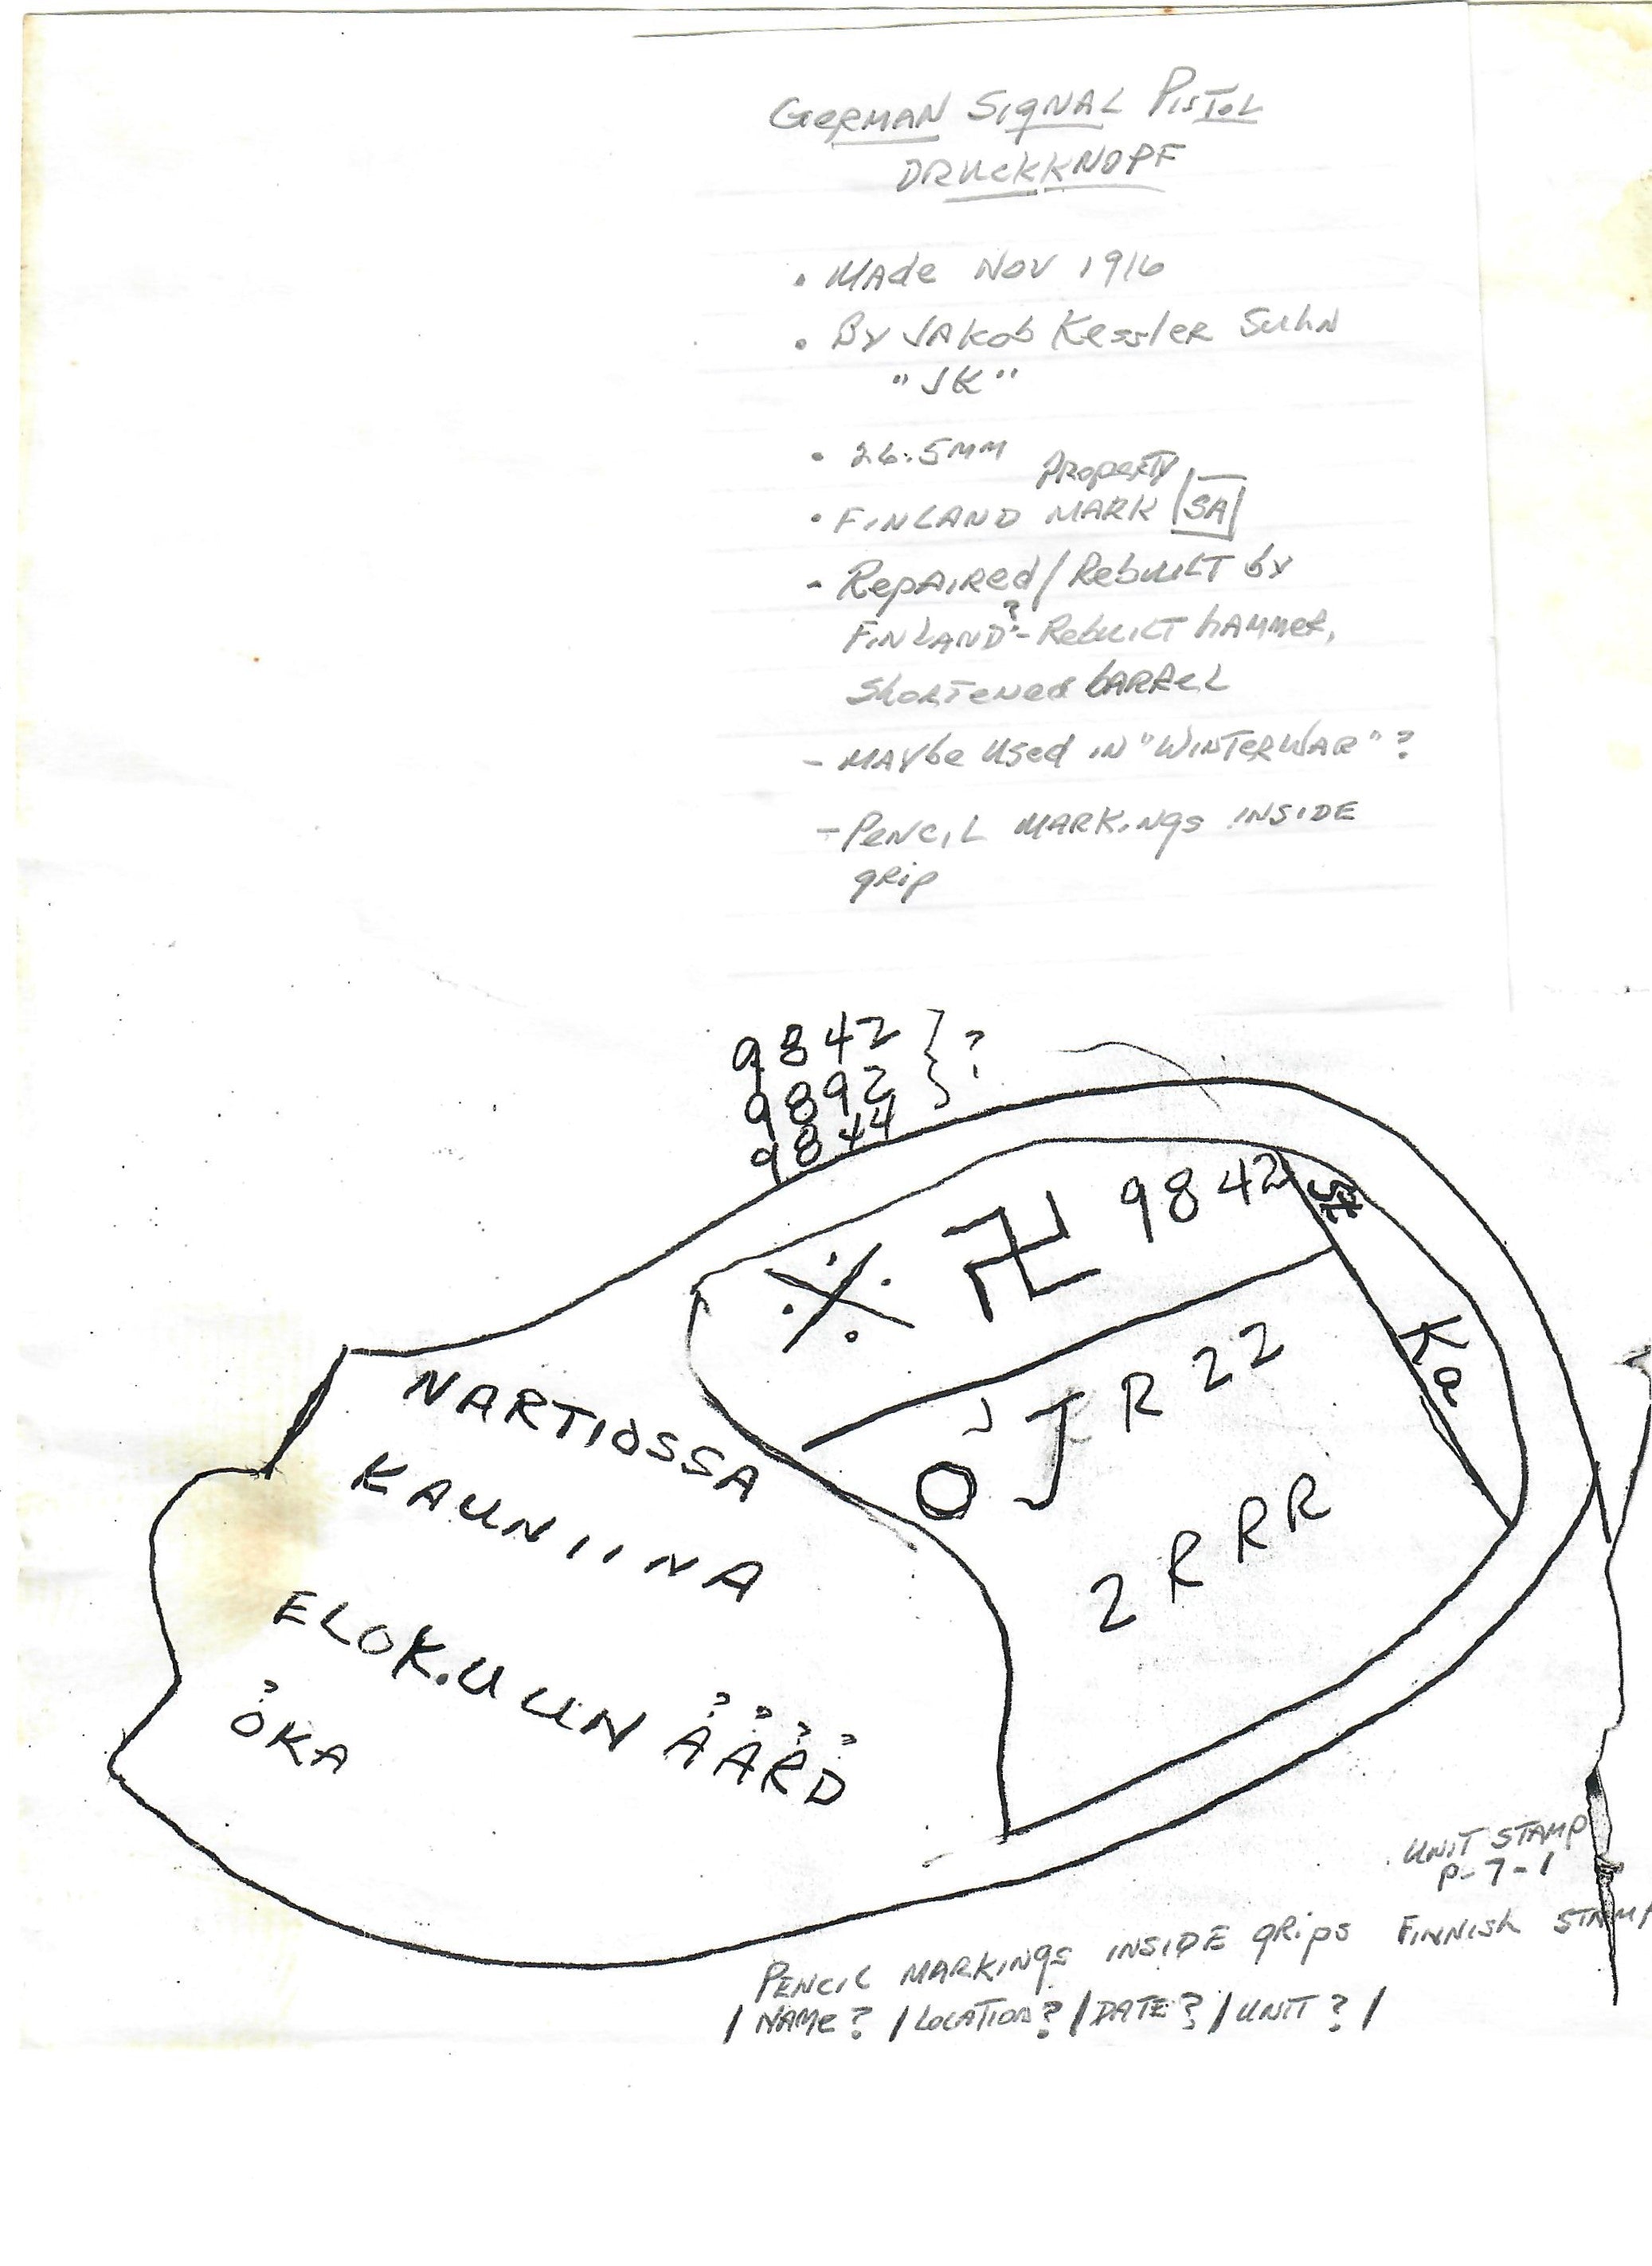 GERMAN SIGNAL PISTOL
DRUCKKNOPF
• MADE NOV 1916
• BY JAKOB KESSLER SUHN
"JK"
• 26.5MM
PROPERTY
• FINLAND MARK SA
- REPAIRED/REBUILT by
FINLAND? - REBUILT hAMMER,
ShORTENED bARREL
- MAYbe USed IN "WINTERWAR" ?
- PENCIL MARKINgs INSIDE
gRIP
9842 } ?
9892
9844
卐 9842
Ka
JR 22
2 RRR
NARTIOSSA
KAUNIINA
ELOK.UUN ÄÄRD
ÖKA
UNIT STAMP
P-7-1
PENCIL MARKINgs INSIDE gRIPS FINNISH
/ NAME? / LOCATION? / DATE? / UNIT? /